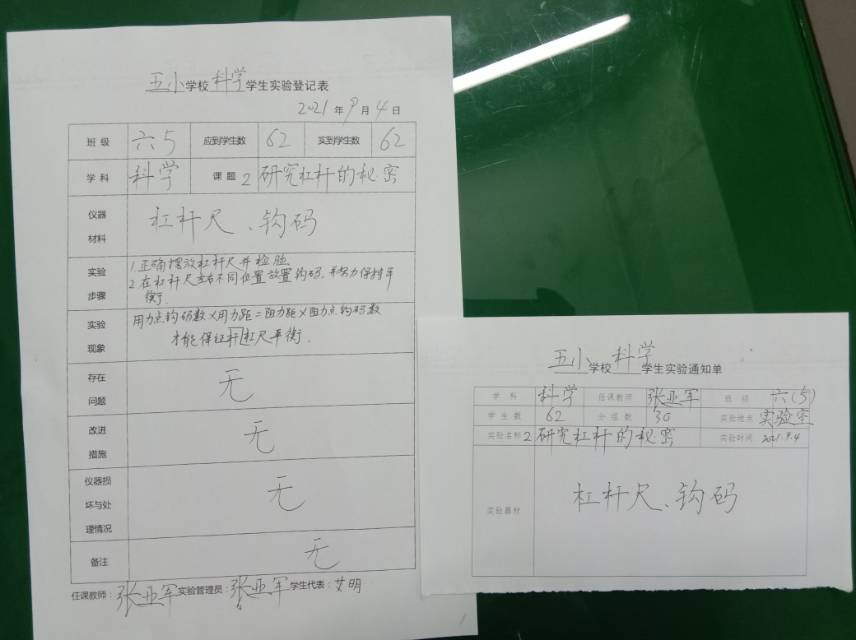 五小学校科学学生实验登记表
2021年9月4日
班级 六5 应到学生数 62 实到学生数 62
学科 科学 课题 2 研究杠杆的秘密
仪器材料 杠杆尺、钩码
实验步骤 1.正确摆放杠杆尺并检验
2.在杠杆尺左右不同位置放置钩码,并努力保持平
衡.
实验现象 用力点钩码数×用力距=阻力距×阻力点钩码数
才能保证杆杠尺平衡.
存在问题 无
改进措施 无
仪器损坏与处理情况 无
备注 无
任课教师:张亚军 实验管理员:张亚军 学生代表:艾明
五小学校科学学生实验通知单
学科 科学 任课教师 张亚军 班级 六(5)
学生数 62 分组数 30 实验地点 实验室
实验名称 2研究杠杆的秘密 实验时间 2021.9.4
实验器材 杠杆尺、钩码